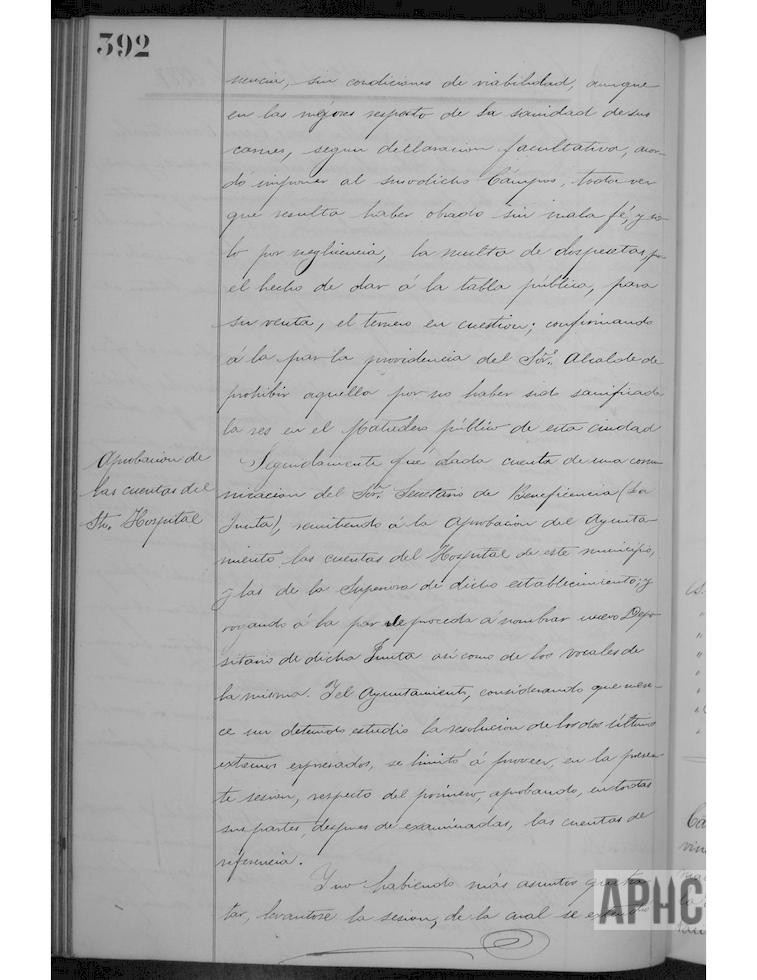 392
nencia, sin condiciones de viabilidad, aunque
en las mejores respecto de la sanidad de sus
carnes, segun declaracion facultativa, acor-
dó imponer al susodicho Campos, toda vez
que resulta haber obrado sin mala fé, y so-
lo por negligencia, la multa de dos pesetas, por
el hecho de dar á la tabla pública, para
su venta, el ternero en cuestion; confirmando
á la par la providencia del Sor. Alcalde de
prohibir aquella por no haber sido sacrificada
la res en el Matadero público de esta ciudad
Aprobacion de
las cuentas del
Sto. Hospital
Segundamente fué dada cuenta de una comu-
nicacion del Sor. Secretario de Beneficencia (La
Junta), remitiendo á la aprobacion del Ayunta-
miento las cuentas del Hospital de este municipio,
y las de la Superiora de dicho establecimiento; y
rogando á la par se proceda á nombrar nuevo Depo-
sitario de dicha Junta asi como de los vocales de
la misma. Y el Ayuntamiento, considerando que mere-
ce un detenido estudio la resolucion de los dos últimos
extremos expresados, se limitó á proveer, en la presen-
te sesion, respecto del primero, aprobando, en todas
sus partes, despues de examinadas, las cuentas de
referencia.
Y no habiendo más asuntos que tra-
tar, levantose la sesion, de la cual se extendió
APHC